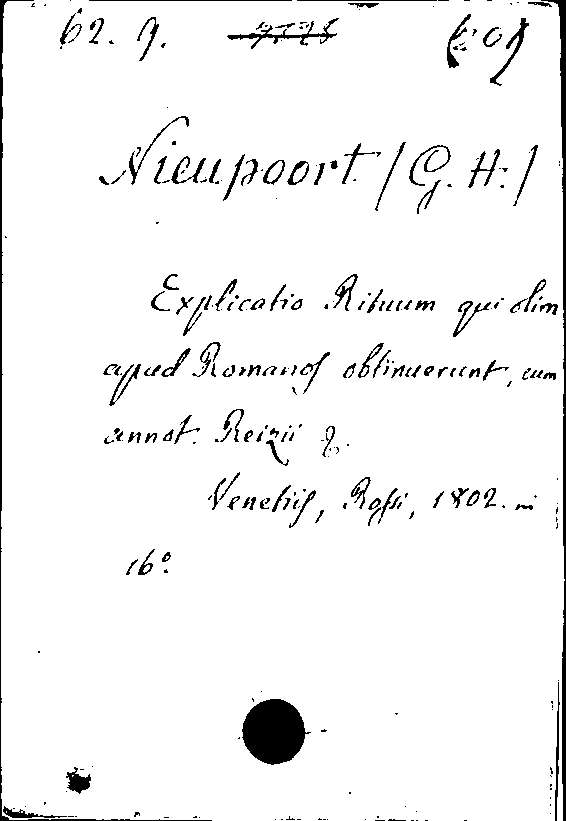 62. 9.
Nieupoort (G. H.)
Explicatio Rituum qui olim
apud Romanos obtinuerunt, cum
annot. Reizii &.
Venetiis, Rossi, 1802. in
16°.